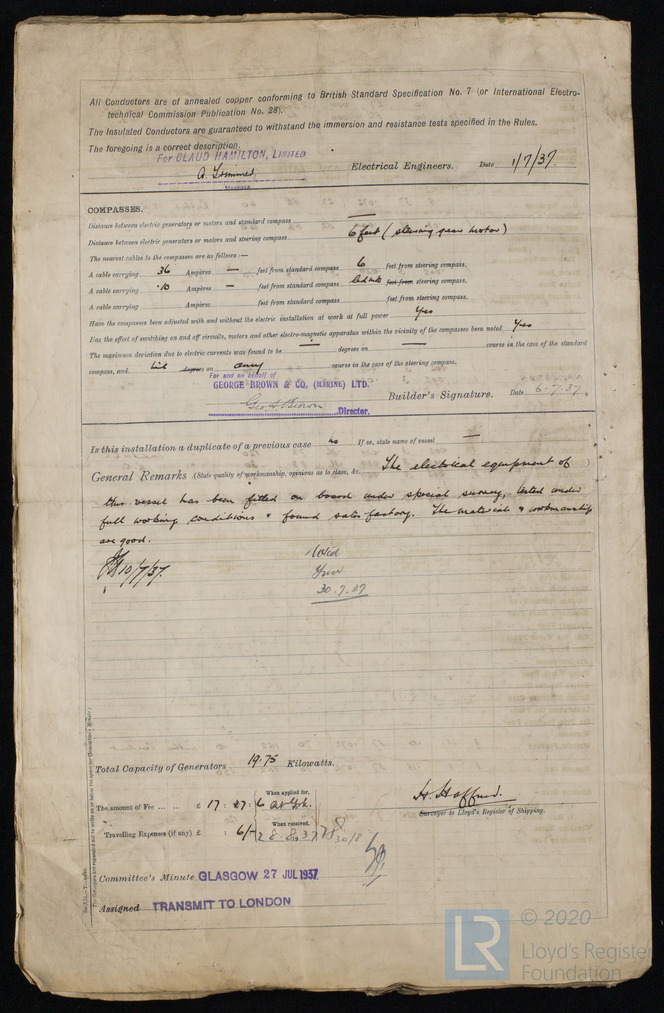 All Conductors are of annealed copper conforming to British Standard Specification No. 7 (or International Electro-
technical Commission Publication No. 28).
The Insulated Conductors are guaranteed to withstand the immersion and resistance tests specified in the Rules.
The foregoing is a correct description.
For CLAUD HAMILTON, LIMITED
Electrical Engineers. Date 1/7/37.
COMPASSES.
Distance between electric generators or motors and standard compass —
Distance between electric generators or motors and steering compass 6 feet (steering gear motor)
The nearest cables to the compasses are as follows:—
A cable carrying 36 Ampères — feet from standard compass 6 feet from steering compass.
A cable carrying .10 Ampères — feet from standard compass led into feet from steering compass.
A cable carrying Ampères feet from standard compass feet from steering compass.
Have the compasses been adjusted with and without the electric installation at work at full power Yes
Has the effect of switching on and off circuits, motors and other electro-magnetic apparatus within the vicinity of the compasses been noted Yes
The maximum deviation due to electric currents was found to be — degrees on — course in the case of the standard
compass, and nil degrees on any course in the case of the steering compass.
For and on behalf of
GEORGE BROWN & CO. (MARINE) LTD.
Geo A Brown Director. Builder's Signature. Date 6.7.37.
Is this installation a duplicate of a previous case no If so, state name of vessel —
General Remarks (State quality of workmanship, opinions as to class, &c. The electrical equipment of
this vessel has been fitted on board under special survey, tested under
full working conditions & found satisfactory. The materials & workmanship
are good.
10/7/37.
30.7.37
Total Capacity of Generators 19.75 Kilowatts.
The amount of Fee ... ... £ 17 : 27 : 6 When applied for,
Travelling Expenses (if any) £ : 6/- When received, 30/8
Surveyor to Lloyd's Register of Shipping.
Committee's Minute GLASGOW 27 JUL 1937
Assigned TRANSMIT TO LONDON
LR © 2020
Lloyd's Register
Foundation